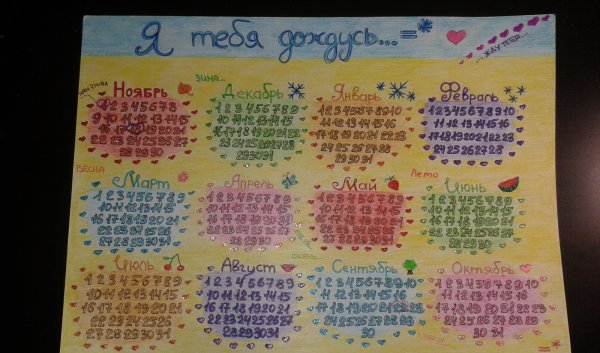 Я тебя дождусь...=
...ЖДУ ТЕБЯ...
ЗИМА...
Ноябрь
1 2 3 4 5 6 7 8
9 10 11 12 13 14 15
16 17 18 19 20 21
22 23 24 25 26 27
28 29 30
Декабрь
1 2 3 4 5 6 7 8 9
10 11 12 13 14 15
16 17 18 19 20 21 22
23 24 25 26 27 28
29 30 31
Январь
1 2 3 4 5 6 7 8 9 10
11 12 13 14 15 16
17 18 19 20 21 22 23
24 25 26 27 28
29 30 31
Февраль
1 2 3 4 5 6 7 8 9 10
11 12 13 14 15 16
17 18 19 20 21 22 23
24 25 26 27 28
ВЕСНА
Март
1 2 3 4 5 6 7 8 9
10 11 12 13 14 15
16 17 18 19 20 21
22 23 24 25 26
27 28 29 30 31
Апрель
1 2 3 4 5 6 7 8 9
10 11 12 13 14 15
16 17 18 19 20 21
22 23 24 25 26 27
28 29 30
Май
1 2 3 4 5 6 7 8 9
10 11 12 13 14 15
16 17 18 19 20 21
22 23 24 25 26
27 28 29 30 31
Лето
Июнь
1 2 3 4 5 6 7 8 9
10 11 12 13 14 15
16 17 18 19 20 21
22 23 24 25 26 27
28 29 30
ОСЕНЬ
Июль
1 2 3 4 5 6 7 8 9
10 11 12 13 14 15
16 17 18 19 20 21
22 23 24 25 26
27 28 29 30 31
Август
1 2 3 4 5 6 7 8 9
10 11 12 13 14 15
16 17 18 19 20 21
22 23 24 25 26 27
28 29 30 31
Сентябрь
1 2 3 4 5 6 7 8 9 10
11 12 13 14 15 16
17 18 19 20 21 22 23
24 25 26 27 28 29
30
Октябрь
1 2 3 4 5 6 7 8 9 10
11 12 13 14 15 16
17 18 19 20 21 22 23
24 25 26 27 28 29
30 31